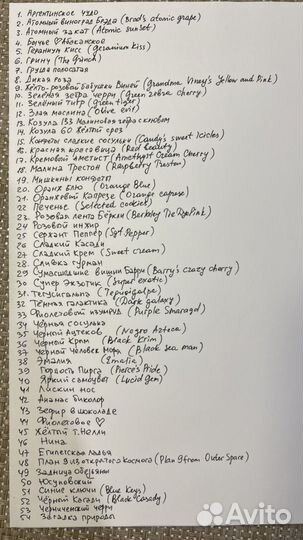 1. Аргентинское чудо
2. Атомный виноград Брэда (Brad's atomic grape)
3. Атомный закат (Atomic sunset)
4. Бычье ♡ Абаканское
5. Гераниум кисс (geranium kiss)
6. Гринч (The grinch)
7. Груша полосатая
8. Дикая роза
9. Жёлто-розовая бабушки Виней (grandma Viney's Yellow and Pink)
10. Зелёная зебра черри (green zebra cherry)
11. Зелёный тигр (green tiger)
12. Злая маслина (Olive evil)
13. Козула 133 Малиновая гора с клювом
14. Козула 60 Жёлтая гроз
15. Конфеты сладкие сосульки (Candy's sweet Icicles)
16. Красная красавица (Red beauty)
17. Кремовый аметист (Amethyst Cream Cherry)
18. Малина Трестон (Raspberry Treston)
19. Мишкины конфеты
20. Оранж Блю (Orange Blue)
21. Оранжевый Капрезе (Orange caprese)
22. Печенье (Selected cookies)
23. Розовая лента Беркли (Berkeley Tie Dye Pink)
24. Розовый инжир
25. Сержант Пеппер (Sgt. Pepper)
26. Сладкий Касади
27. Сладкий крем (Sweet cream)
28. Сливка гурман
29. Сумасшедшие вишни Барри (Barry's crazy cherry)
30 Супер Экзотик (Super exotic)
31. Тегусигальпа (Tegucigalpa)
32. Тёмная галактика (Dark galaxy)
33 Фиолетовый изумруд (Purple Smaragd)
34 Чёрная сосулька
35 Чёрный Ацтеков (Negro Azteca)
36 Чёрный Крым (Black Krim)
37 Чёрный Человек моря (Black sea man)
38 Эмалия (Emalia)
39 Гордость Пирса (Pierce's Pride)
40 Яркий самоцвет (Lucid gem)
41 Лискин нос
42 Ананас биколор
43 Зефир в шоколаде
44 Фиолетовое ♡
45 Жёлтый т. Нелли
46 Нина
47 Египетская ладья
48 План 9 из открытого космоса (Plan 9 from Outer Space)
49 Задница обезьяны
50 Юсуповский
51 Синие ключи (Blue Keys)
52 Чёрной Касади (Black Casady)
53 Черниченский черри
54 Загадка природы
Avito